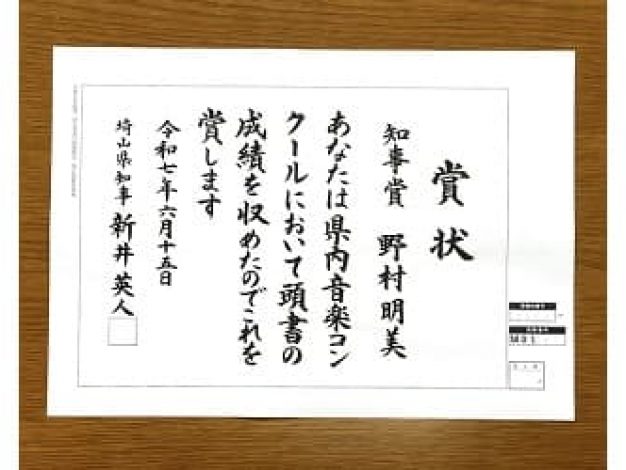 賞状
知事賞 野村明美
あなたは県内音楽コン
クールにおいて頭書の
成績を収めたのでこれを
賞します
令和七年六月十五日
埼山県知事 新井英人